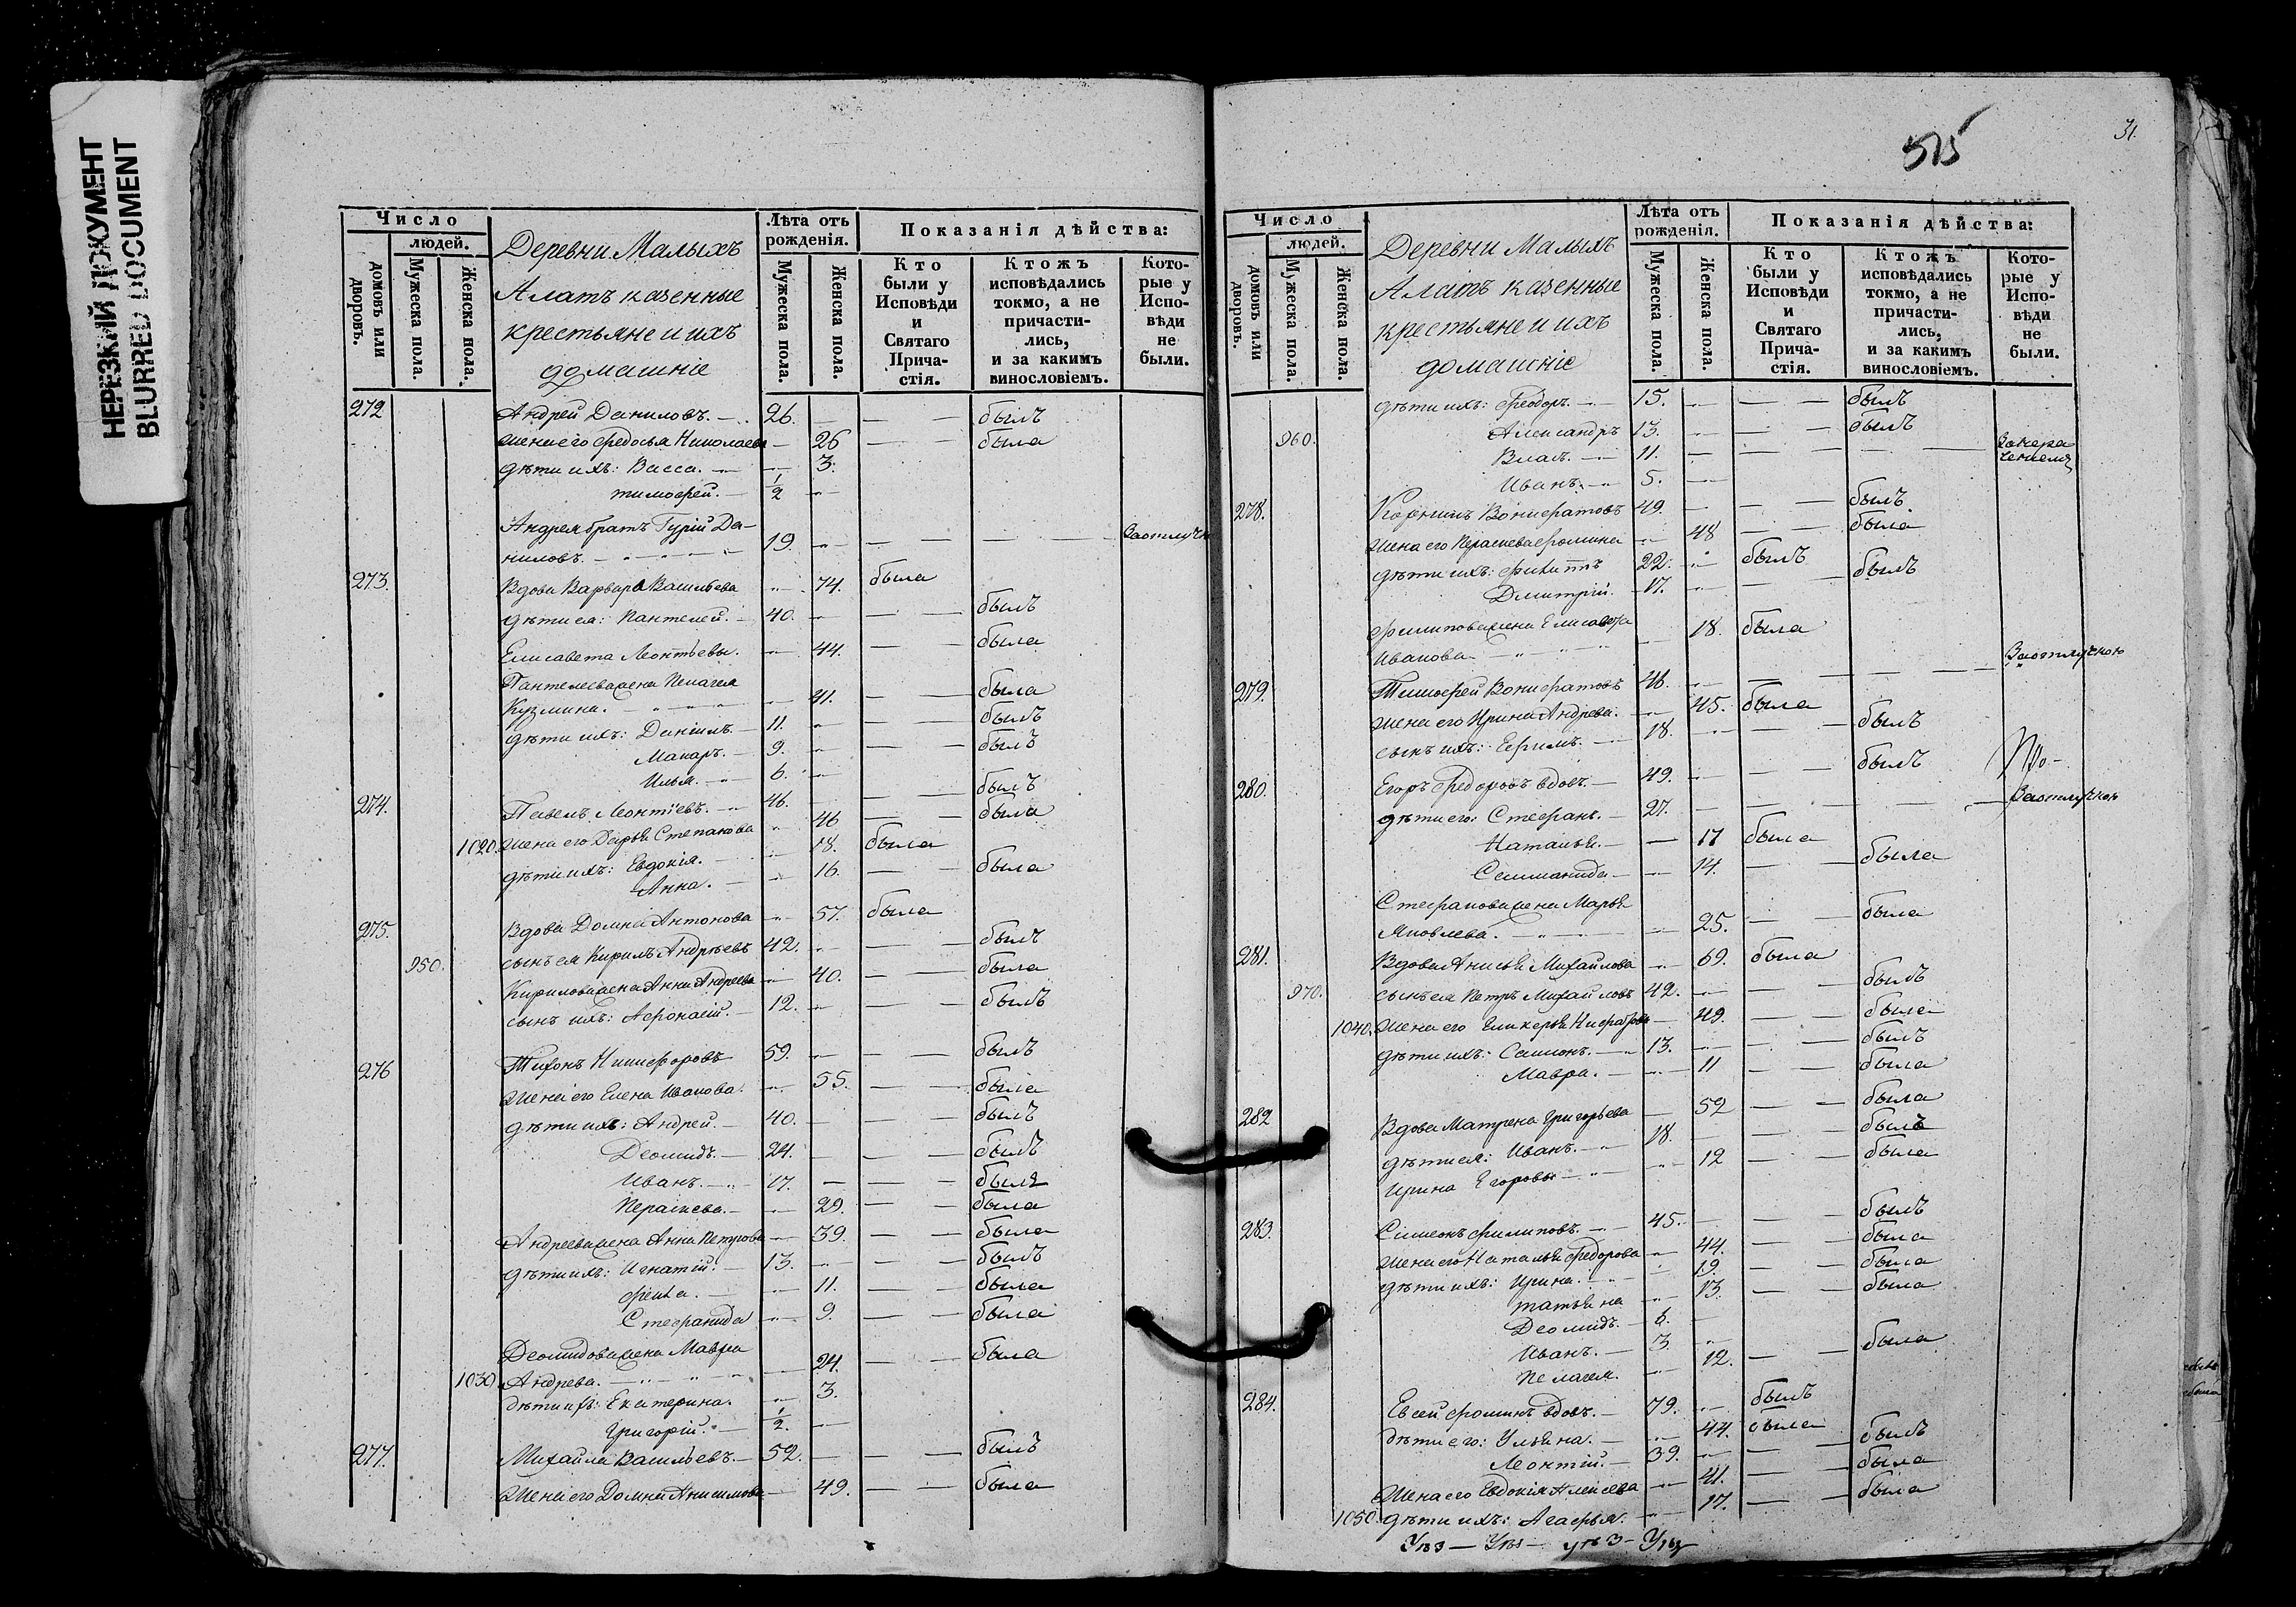 НЕРЕЗКИЙ ДОКУМЕНТ
BLURRED DOCUMENT
Число
людей.
домовъ или дворовъ.
Мужеска пола.
Женска пола.
Деревни Малыхъ
Алатъ казенные
крестьяне и ихъ
домашніе
Лѣта отъ рожденія.
Мужеска пола.
Женска пола.
Показанія дѣйства:
Кто были у Исповѣди и Святаго Прича-стія.
Ктожъ исповѣдались токмо, а не причасти-лись, и за какимъ винословіемъ.
Кото-рые у Испо-вѣди не были.
272 Андрей Даниловъ. 26. былъ
жена его Федосья Николаева 26 была
дѣти ихъ: Васса. 3.
Тимофей. 1/2
Андрея братъ Гурій Да-
ниловъ. 19. За отлуч
273. Вдова Варвара Васильева 74. была
дѣти ея: Пантелей. 40. былъ
Елисавета Леонтьевы. 44. была
Пантелеева жена Пелагея
Кузмина. 41. была
дѣти ихъ: Даніилъ. 11. былъ
Макаръ. 9. былъ
Илья. 6.
274. Павелъ Леонтіевъ. 46. былъ
1020. жена его Дарья Степанова 46 была
дѣти ихъ: Евдокія. 18. была
Анна. 16. была
275. Вдова Домна Антонова 57. была
950. сынъ ея Кирилъ Андрѣевъ 42. былъ
Кирилова жена Анна Андреева 40. была
сынъ ихъ: Афонасій. 12. былъ
276 Тихонъ Никифоровъ 59. былъ
жена его Елена Иванова. 55. была
дѣти ихъ: Андрей. 40. былъ
Деомидъ. 24. былъ
Иванъ. 17. былъ
Параскева. 29. была
Андреева жена Анна Петрова 39. была
дѣти ихъ: Игнатій. 13. былъ
Фекла. 11. была
Стефанида 9. была
Деомидова жена Мавра
1030. Андрева. 24. была
дѣти ихъ: Екатерина. 3.
Григорій. 1/2.
277. Михайла Васильевъ. 52. былъ
жена его Домна Анисимова 49. была
515
31.
Число
людей.
домовъ или дворовъ.
Мужеска пола.
Женска пола.
Деревни Малыхъ
Алатъ казенные
крестьяне и ихъ
домашніе
Лѣта отъ рожденія.
Мужеска пола.
Женска пола.
Показанія дѣйства:
Кто были у Исповѣди и Святаго Прича-стія.
Ктожъ исповѣдались токмо, а не причасти-лись, и за какимъ винословіемъ.
Кото-рые у Испо-вѣди не были.
дѣти ихъ: Феодоръ. 15. былъ
960. Александръ 13. былъ
Власъ. 11.
Иванъ. 5.
278. Вонифатовъ 49. былъ
жена его Параскева Фомина 48 была
дѣти ихъ: Филиппъ 22. былъ
Димитрій. 17. былъ
Филипова жена Елисавета
Иванова 18. была
279. Тимофей Вонифатовъ 46. За отлучкою
жена его Ирина Андрева. 45. была
сынъ ихъ: Ефимъ. 18. былъ
280. Егоръ Федоровъ вдовъ. 49. былъ
дѣти его: Стефанъ. 27. За отлучкою
Наталья. 17 была
14. была
Стефанова жена Марья
Яковлева. 25. была
281. Вдова Анисья Михайлова 69. была
970. сынъ ея Петръ Михайловъ 42. былъ
1040. жена его Гликерья 49. была
дѣти ихъ: Самсонъ. 13. былъ
Мавра. 11 была
282 Вдова Матрена Григорьева 52 была
дѣти ея: Иванъ. 18. былъ
Ирина Егоровы 12 была
283. Симеонъ Филиповъ. 45. былъ
жена его Наталья Федорова 44. была
дѣти ихъ: Ирина. 19. была
Татьяна 13. была
Деомидъ. 8.
Иванъ. 3
Пелагея. 12. была
284. Евсей Фоминъ вдовъ. 79. былъ
дѣти его: Ульяна. 44. была
Леонтій. 39. былъ
жена его Евдокія Алексева 41. была
1050. дѣти ихъ: Агафья. 17. была